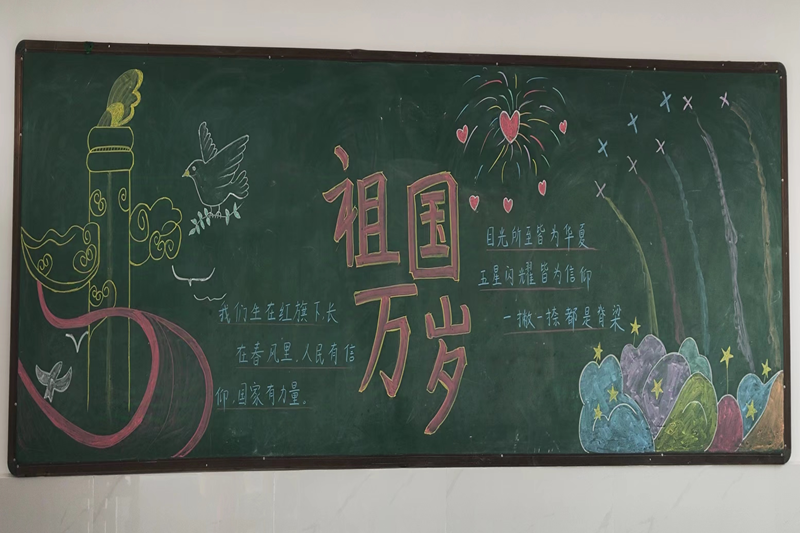 祖国
万岁
我们生在红旗下,长
在春风里,人民有信
仰,国家有力量。
目光所至皆为华夏
五星闪耀皆为信仰
一撇一捺都是脊梁